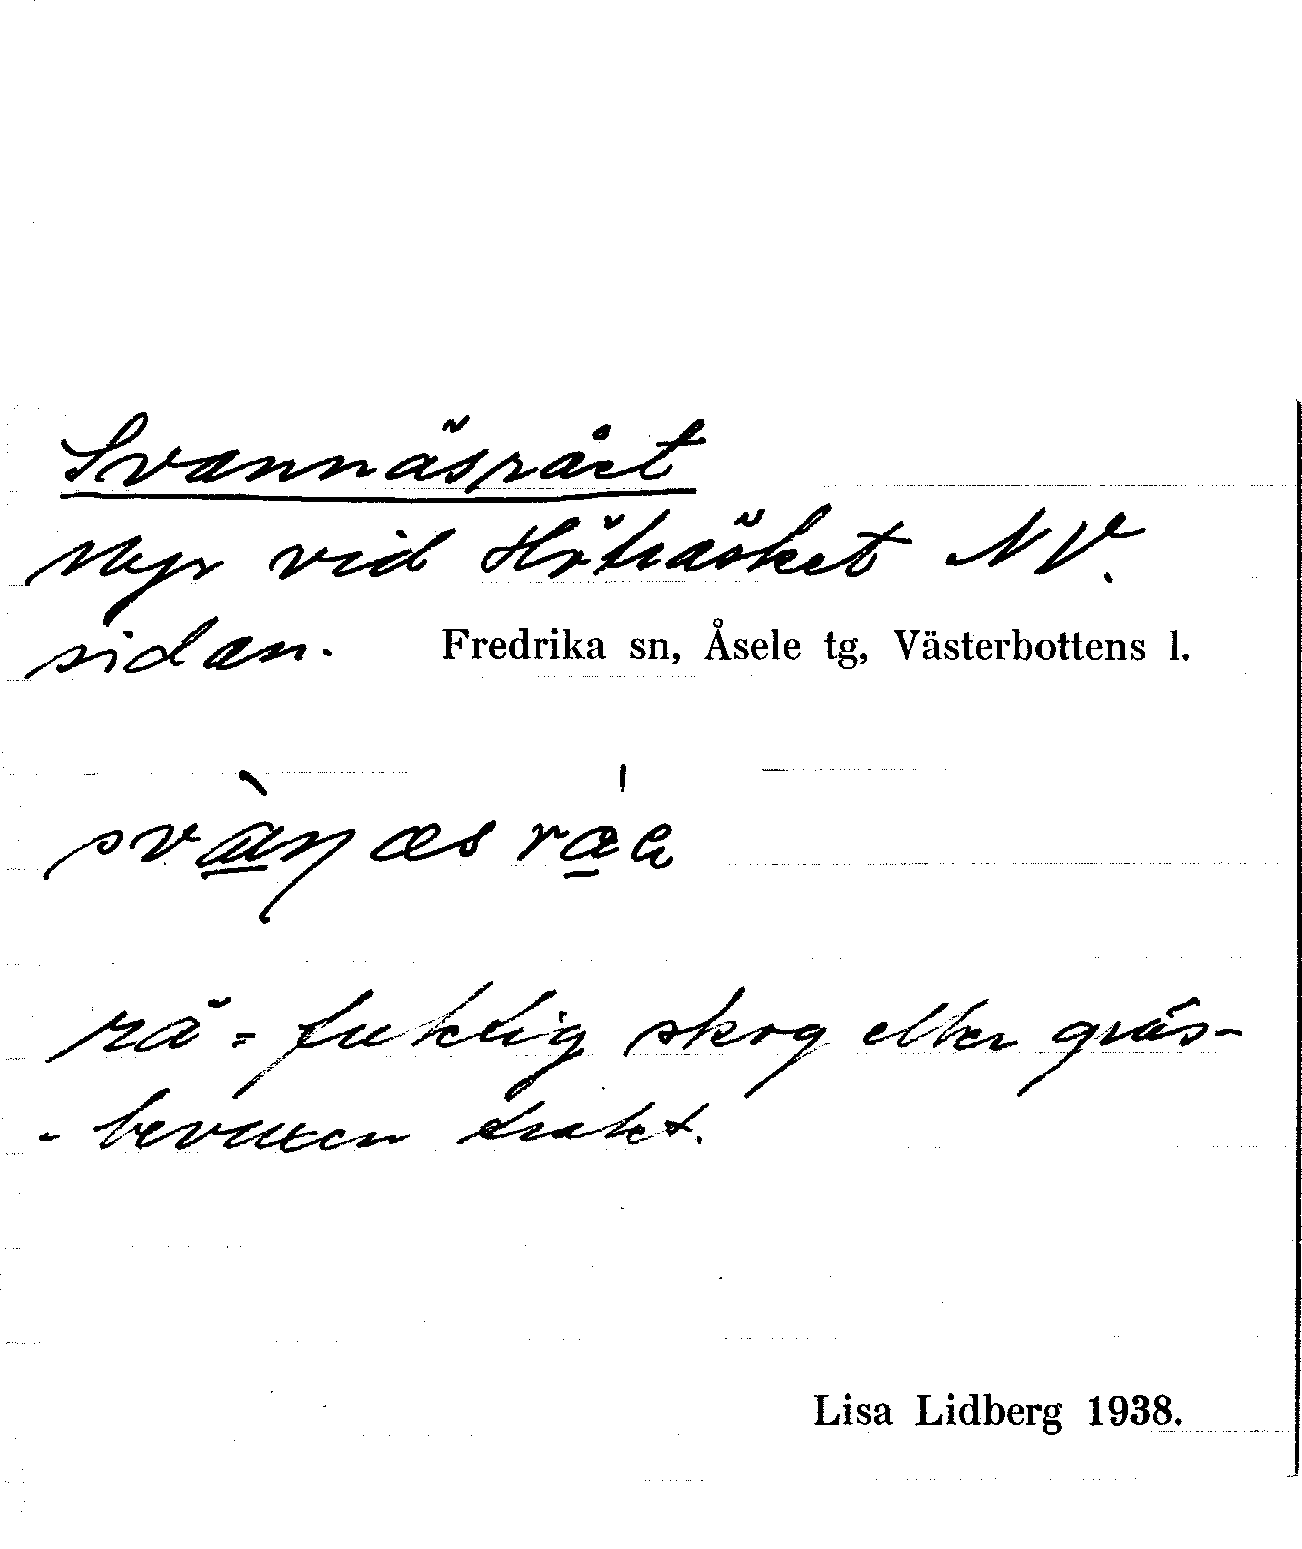 Svannäsrået
Myr vid Höträsket NV.
sidan. Fredrika sn, Åsele tg, Västerbottens l.
rå = fuktig skog eller gräs-
- bevuxen trakt.
Lisa Lidberg 1938.